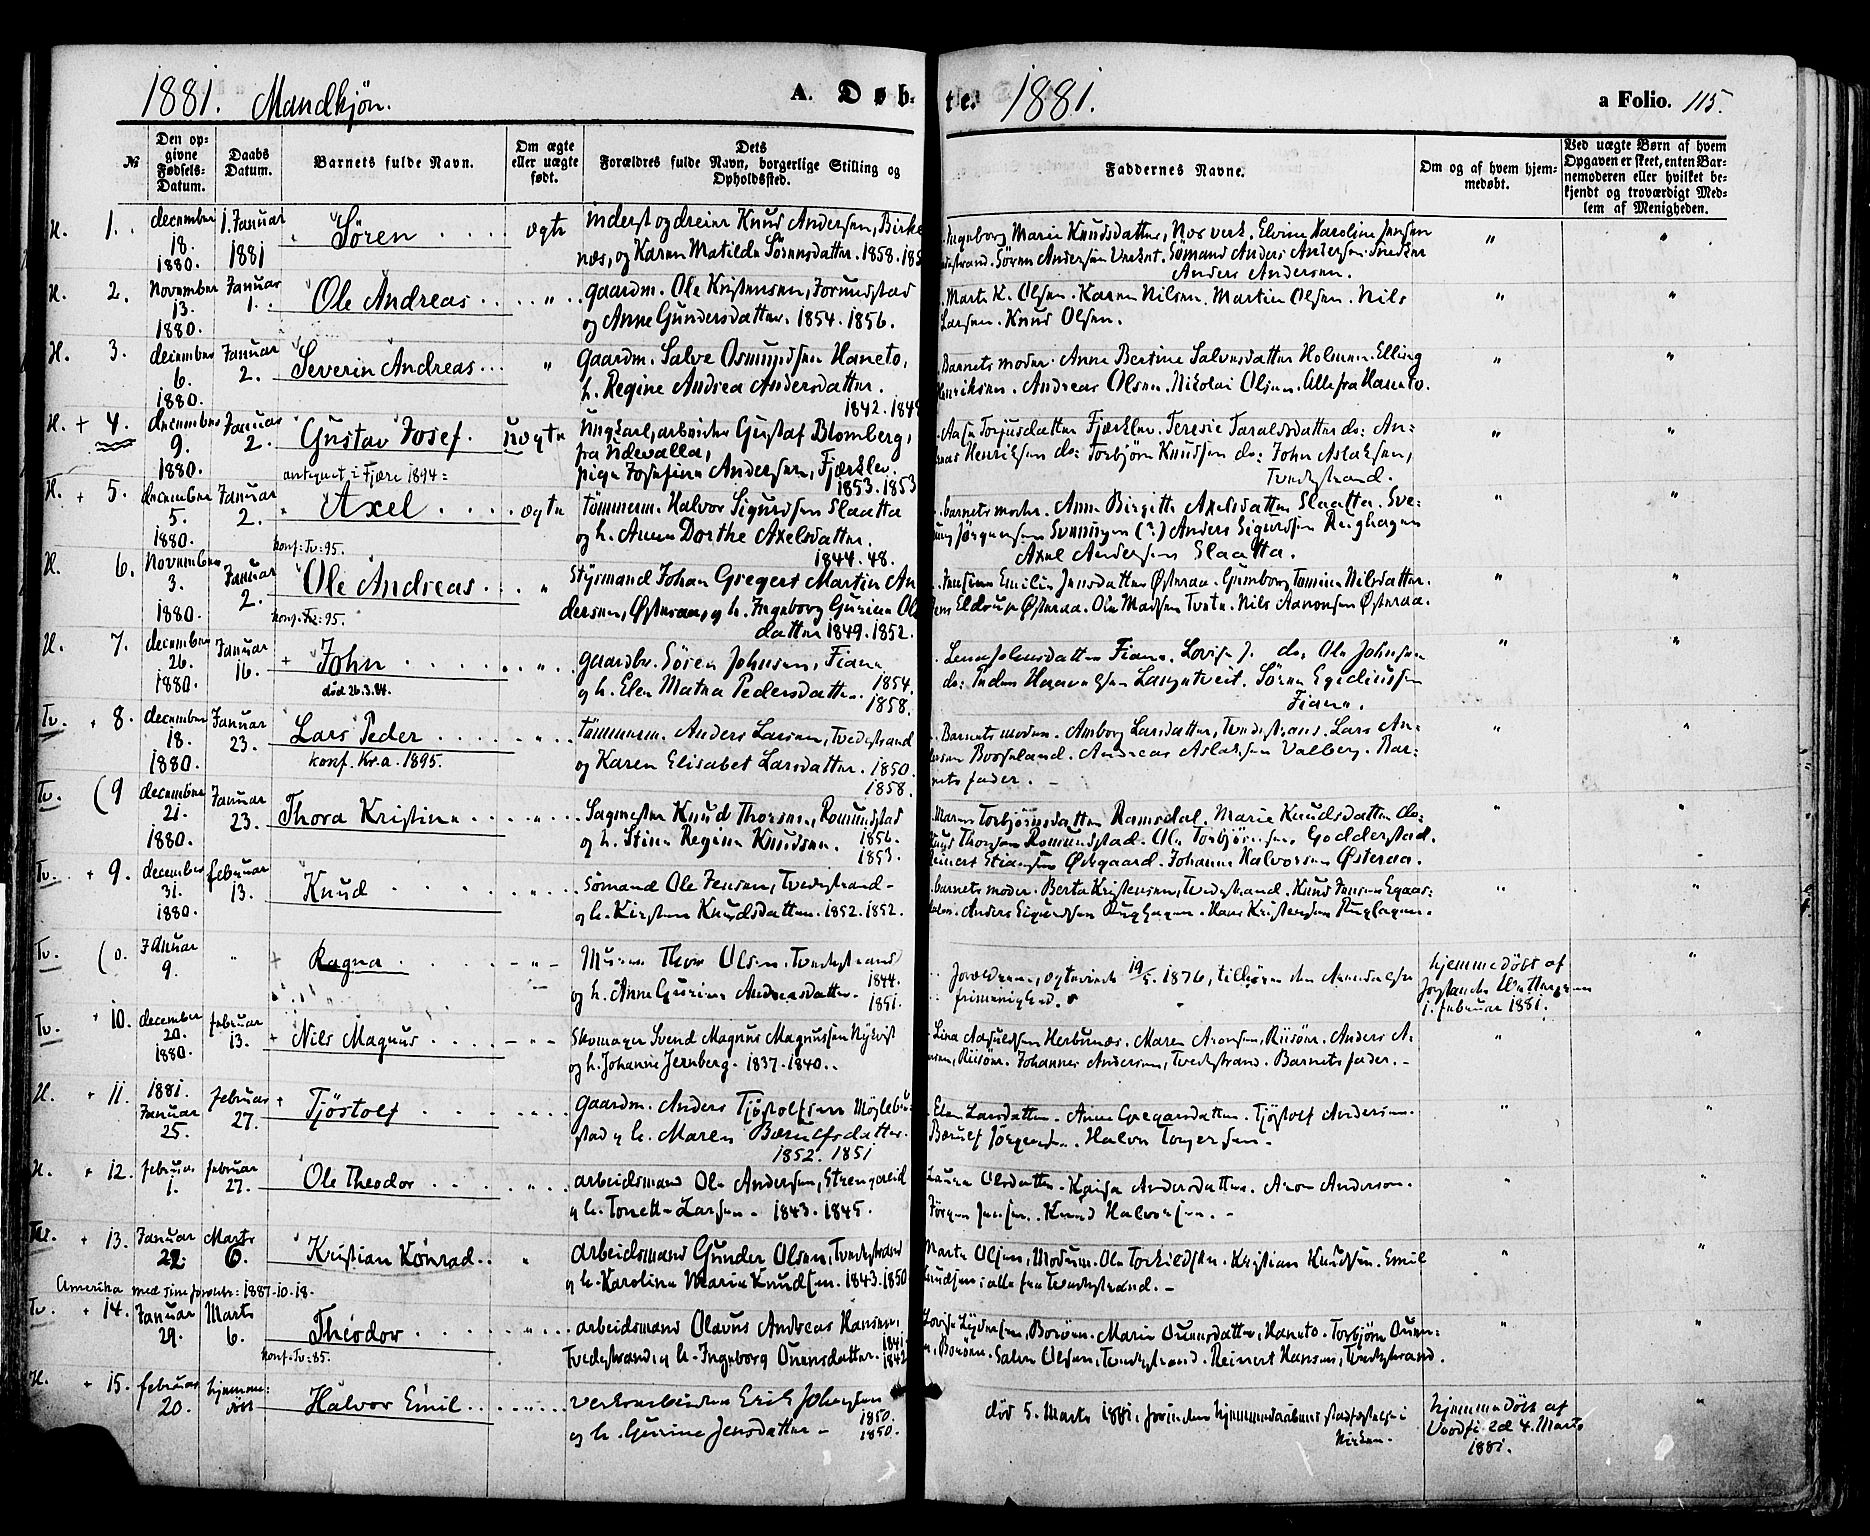 1881. Mandkjön. A. Døb-
te. 1881. a Folio. 115.
№
Den opgivne Fødsels-Datum.
Daabs Datum.
Barnets fulde Navn.
Om ægte eller uægte født.
Dets Forældres fulde Navn, borgerlige Stilling og Opholdssted.
Faddernes Navne.
Om og af hvem hjemmedøbt.
Ved uægte Børn af hvem Opgaven er skeet, enten Barnemoderen eller hvilket bekjendt og troværdigt Medlem af Menigheden.
H. 1. december 18. 1880. 1. Januar 1881 Sören ægte
Inderst og dreier Knud Andersen, Birke
næs, og Karen Matilde Sörensdatter. 1858.
Ingeborg Marie Knudsdatter, Næs verk. Elvine Karoline Jensen
Sören Andersen Verket. Sömand Anders Andersen. Snedker
Anders Andersen.
H. 2. November 13. 1880. Januar 1. Ole Andreas "
gaardm. Ole Kristensen, Forundstad
og Anne Gundersdatter. 1854. 1856.
Marte K. Olsen. Karen Nilsen. Martin Olsen. Nils
Larsen. Knud Olsen.
H. 3. december 6. 1880. Januar 2. Severin Andreas "
gaardm. Salve Osmundsen Haneto,
h. Regine Andrea Andersdatter.
1842. 184
Barnets moder. Anne Bertine Salvesdatter Holmen. Elling
Henriksen. Andreas Olsen. Nikolai Olsen. Alle fra Haneto.
H. + 4. december 9. 1880. Januar 2. Gustav Josef. uægte
Ungkarl, arbeider Gustaf Blomberg,
fra Udevalla,
pige Josefine Andersen, Fjærklev.
1853. 1853
Aase Torjusdatter Fjærklev. Teresie Taraldsdatter do: An-
Henriksen do: Torbjörn Knudsen do: John Aslaksen,
Tvedestrand.
antegnet i Fjære 1894:
H. + 5. december 5. 1880. Januar 2. Axel ægte
tömmerm. Halvor Sigurdsen Slaatta
og h. Anne Dorthe Axelsdatter.
1844. 48.
barnets moder. Anne Birgitte Axelsdatter Slaatta. Sve-
Jörgensen Sveningen (?) Anders Sigurdsen Rughagen
Axel Andersen Slaatta.
konf: Tv: 95.
H. 6. November 3. 1880. Januar 2. Ole Andreas "
Styrmand Johan Gregert Martin An
dersen, Österaa, og h. Ingeborg Gurine Ol
datter 1849. 1852.
Emilie Jensdatter Österaa. Gunborg Tomine Nilsdatter.
Jens Eldrup Österaa. Ole Madsen Tveite. Nils Aaronsen Österaa.
konf: Tv: 95.
H. 7. december 26. 1880. Januar 16. + John "
gaardbr. Sören Johnsen, Fiane
og h. Elen Matea Pedersdatter. 1854.
1858.
Lene Johnsdatter Fiane. Lovise J. do. Ole Johnsen
do: Peder Haavelsen Langetveit. Sören Egidiussen
Fiane.
död 26.3.84.
Tv. + 8. december 18. 1880. Januar 23. Lars Peder "
Tömmerm. Anders Larsen, Tvedestrand
og Karen Elisabet Larsdatter. 1850.
1858.
Barnets moder. Amborg Larsdatter, Tvedestrand. Lars An-
dersen Borgeland. Andreas Aslaksen Valberg. Bar-
nets fader. –
konf. Kr.a. 1895.
Tv. (9 december 21. 1880. Januar 23. Thora Kristine "
Sagmester Knud Thorsen, Romundstad
og h. Stine Regine Knudsen. 1856.
1853.
Maren Torbjörnsdatter Ramsdal. Marie Knudsdatter do.
Knud Thorsen Romundstad. Ole Torbjörnsen, Godderstad.
Reinert Stiansen Ödegaard. Johanne Halvorsen Österaa.
Tv. + 9. december 31. 1880. februar 13. Knud "
Sömand Ole Jensen, Tvedestrand–
og h. Kirsten Knudsdatter. 1852. 1852.
barnets moder. Berte Kristensen, Tvedestrand. Knud Jensen Egaas-
dalen. Anders Sigurdsen Rughagen. Hans Kristensen Rughagen.
Tv. (o. Januar 9. " + Ragna "
Murer Thor Olsen. Tvedestrand
og h. Anne Gurine Andreasdatter. 1844.
1851.
Forældrene, ægteviede 19/5. 1876, tilhörer den Arendalske
frimenighed.
hjemmedöbt af
1. februar 1881.
Tv. + 10. december 20. 1880. februar 13. + Nils Magnus "
Skomager Svend Magnus Magnussen Nykvist
og h. Johanne Jernberg. 1837. 1840.
Lina Aasuldsen Herbunæs. Maren Aronsen, Riisör. Anders A-
ronsen, Riisör. Johannes Andersen, Tvedestrand. Barnets fader. –
H. + 11. 1881. Januar 25. februar 27. + Tjöstolf "
gaardm. Anders Tjöstolfsen Möglebu-
stad og h. Maren Bærulfsdatter.
1852. 1851
Elen Larsdatter. Anne Gregarsdatter. Tjöstolf Andersen.
Bærulf Jörgensen. Halvor Torgersen.
H. + 12. februar 1. februar 27. Ole Theodor "
arbeidsmand Ole Andersen, Strengereid
og h. Tonette Larsen. 1843. 1845.
Laura Olsdatter. Kaisa Andersdatter. Aron Anderson.
Jörgen Jensen. Knud Halvorsen. –
Tv. + 13. Januar 22. Marts 6. Kristian Konrad "
Arbeidsmand Gunder Olsen, Tvedestrand
og h. Karoline Marie Knudsen. 1843. 1850
Marte Olsen, Modum. Ole Torkildsen. Kristian Knudsen. Emil
Knudsen; alle fra Tvedestrand. –
Amerika med sine forældre: 1887. 10. 18.
Tv. + 14. Januar 29. Marts 6. Theodor "
arbeidsmand Olavus Andreas Hansen,
Tvedestrand, og h. Ingeborg Ounensdatter. 1841
1842
Lovise Borøen. Marie Ounensdatter, Haneto. Torbjörn Ounen-
Borøen. Salve Olsen, Tvedestrand. Reinert Hansen, Tvedestrand.
konf. Tv: 85.
H. + 15. februar 20. hjemme-döbt Halvor Emil "
Verksarbeider Erik Johansen
og h. Gurine Jensdatter – 1850.
1850.
död 5. Marts 1881, forinden hjemmedaabens stadfæstelse i
Kirken.
hjemmedöbt af
Voodfield 4. Marts
1881.